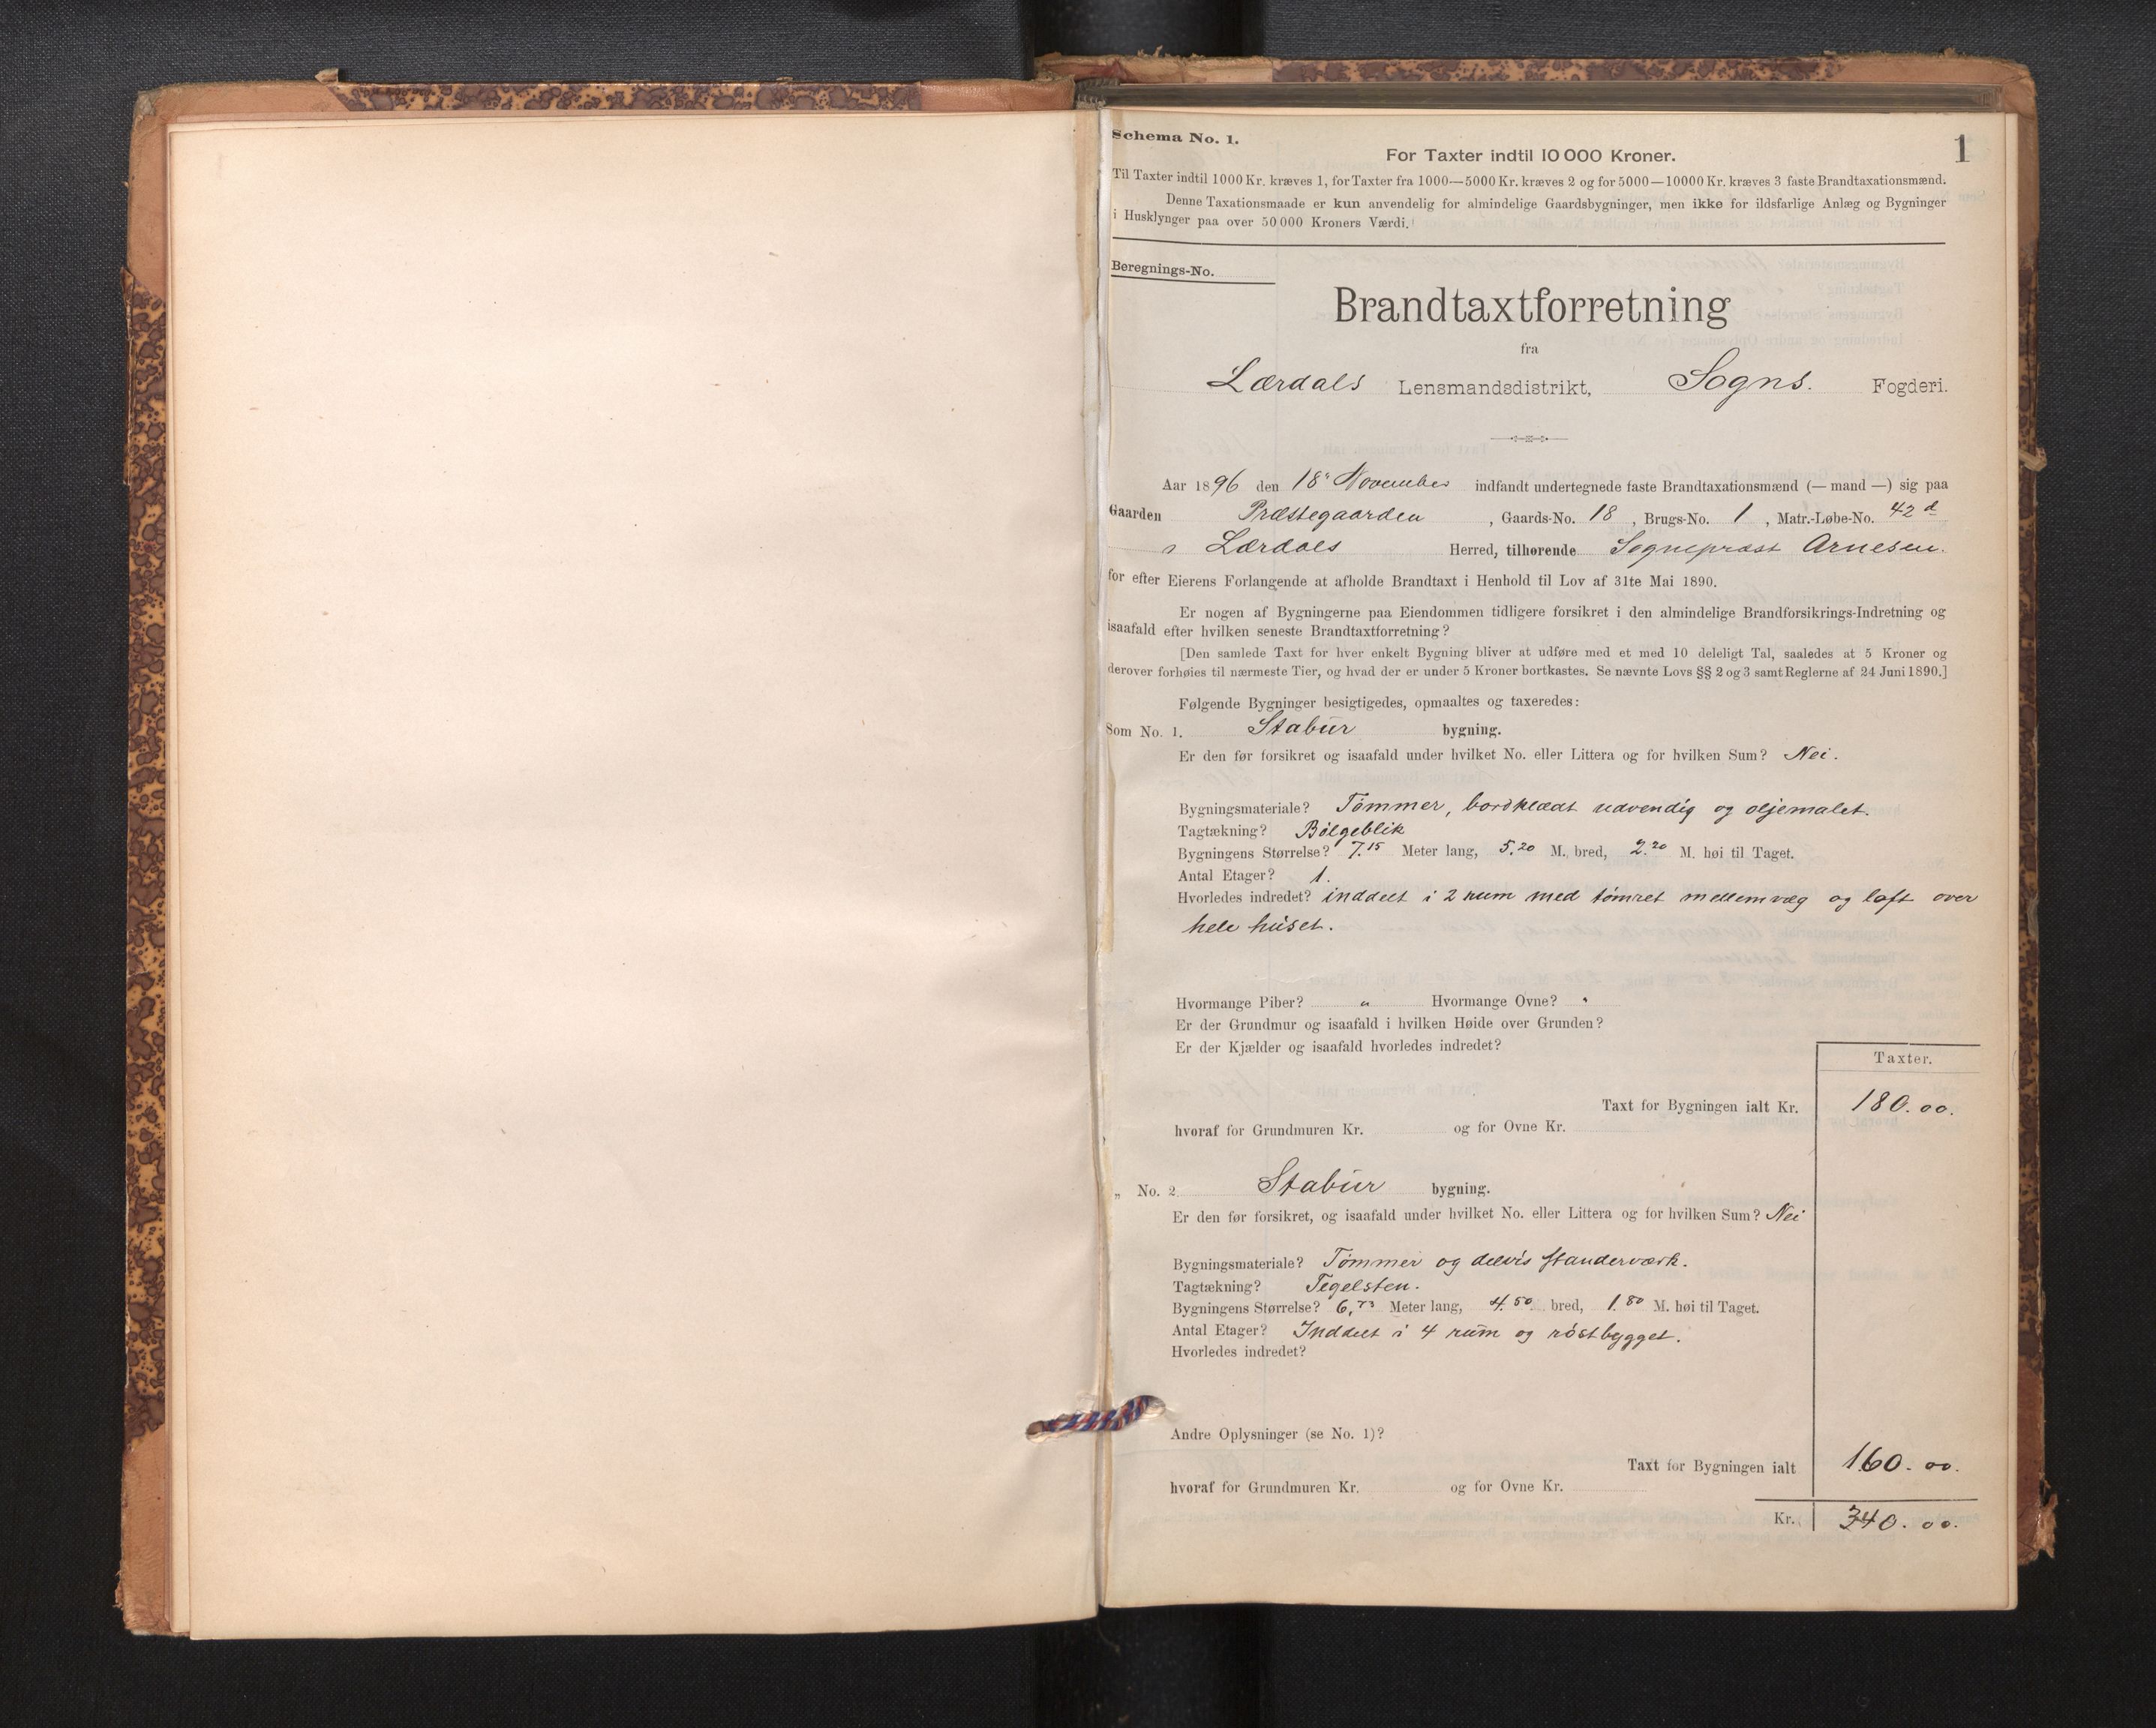 Schema No. 1.
1
For Taxter indtil 10 000 Kroner.
Til Taxter indtil 1000 Kr. kræves 1, for Taxter fra 1000—5000 Kr. kræves 2 og for 5000—10000 Kr. kræves 3 faste Brandtaxationsmænd.
Denne Taxationsmaade er kun anvendelig for almindelige Gaardsbygninger, men ikke for ildsfarlige Anlæg og Bygninger
i Husklynger paa over 50 000 Kroners Værdi.
Beregnings-No.
Brandtaxtforretning
fra
Lærdals Lensmandsdistrikt, Sogns. Fogderi.
Aar 1896 den 18' November indfandt undertegnede faste Brandtaxationsmænd (— mand —) sig paa
Gaarden Præstegaarden, Gaards-No. 18, Brugs-No. 1, Matr.-Løbe-No. 42 d
i Lærdals Herred, tilhørende Sognepræst Arnesen.
for efter Eierens Forlangende at afholde Brandtaxt i Henhold til Lov af 31te Mai 1890.
Er nogen af Bygningerne paa Eiendommen tidligere forsikret i den almindelige Brandforsikrings-Indretning og
isaafald efter hvilken seneste Brandtaxtforretning?
[Den samlede Taxt for hver enkelt Bygning bliver at udføre med et med 10 deleligt Tal, saaledes at 5 Kroner og
derover forhøies til nærmeste Tier, og hvad der er under 5 Kroner bortkastes. Se nævnte Lovs §§ 2 og 3 samt Reglerne af 24 Juni 1890.]
Følgende Bygninger besigtigedes, opmaaltes og taxeredes:
Som No. 1. Stabur bygning.
Er den før forsikret og isaafald under hvilket No. eller Littera og for hvilken Sum? Nei.
Bygningsmateriale? Tømmer, bordklædt udvendig og oljemalet.
Tagtækning? Bølgeblik
Bygningens Størrelse? 7.15 Meter lang, 5.20 M. bred, 2.20 M. høi til Taget.
Antal Etager? 1.
Hvorledes indredet? inddelt i 2 rum med tømret mellemvæg og loft over
hele huset.
Hvormange Piber? " Hvormange Ovne? "
Er der Grundmur og isaafald i hvilken Høide over Grunden?
Er der Kjælder og isaafald hvorledes indredet?
Taxter.
Taxt for Bygningen ialt Kr. 180.00.
hvoraf for Grundmuren Kr. og for Ovne Kr.
„ No. 2. Stabur bygning.
Er den før forsikret, og isaafald under hvilket No. eller Littera og for hvilken Sum? Nei
Bygningsmateriale? Tømmer og delvis standerværk.
Tagtækning? Tegelsten.
Bygningens Størrelse? 6, Meter lang, 4.50 bred, 1.80 M. høi til Taget.
Antal Etager? Inddelt i 4 rum og røstbygget.
Hvorledes indredet?
Andre Oplysninger (se No. 1)?
Taxt for Bygningen ialt 160.00.
hvoraf for Grundmuren Kr. og for Ovne Kr.
Kr. 340.00.